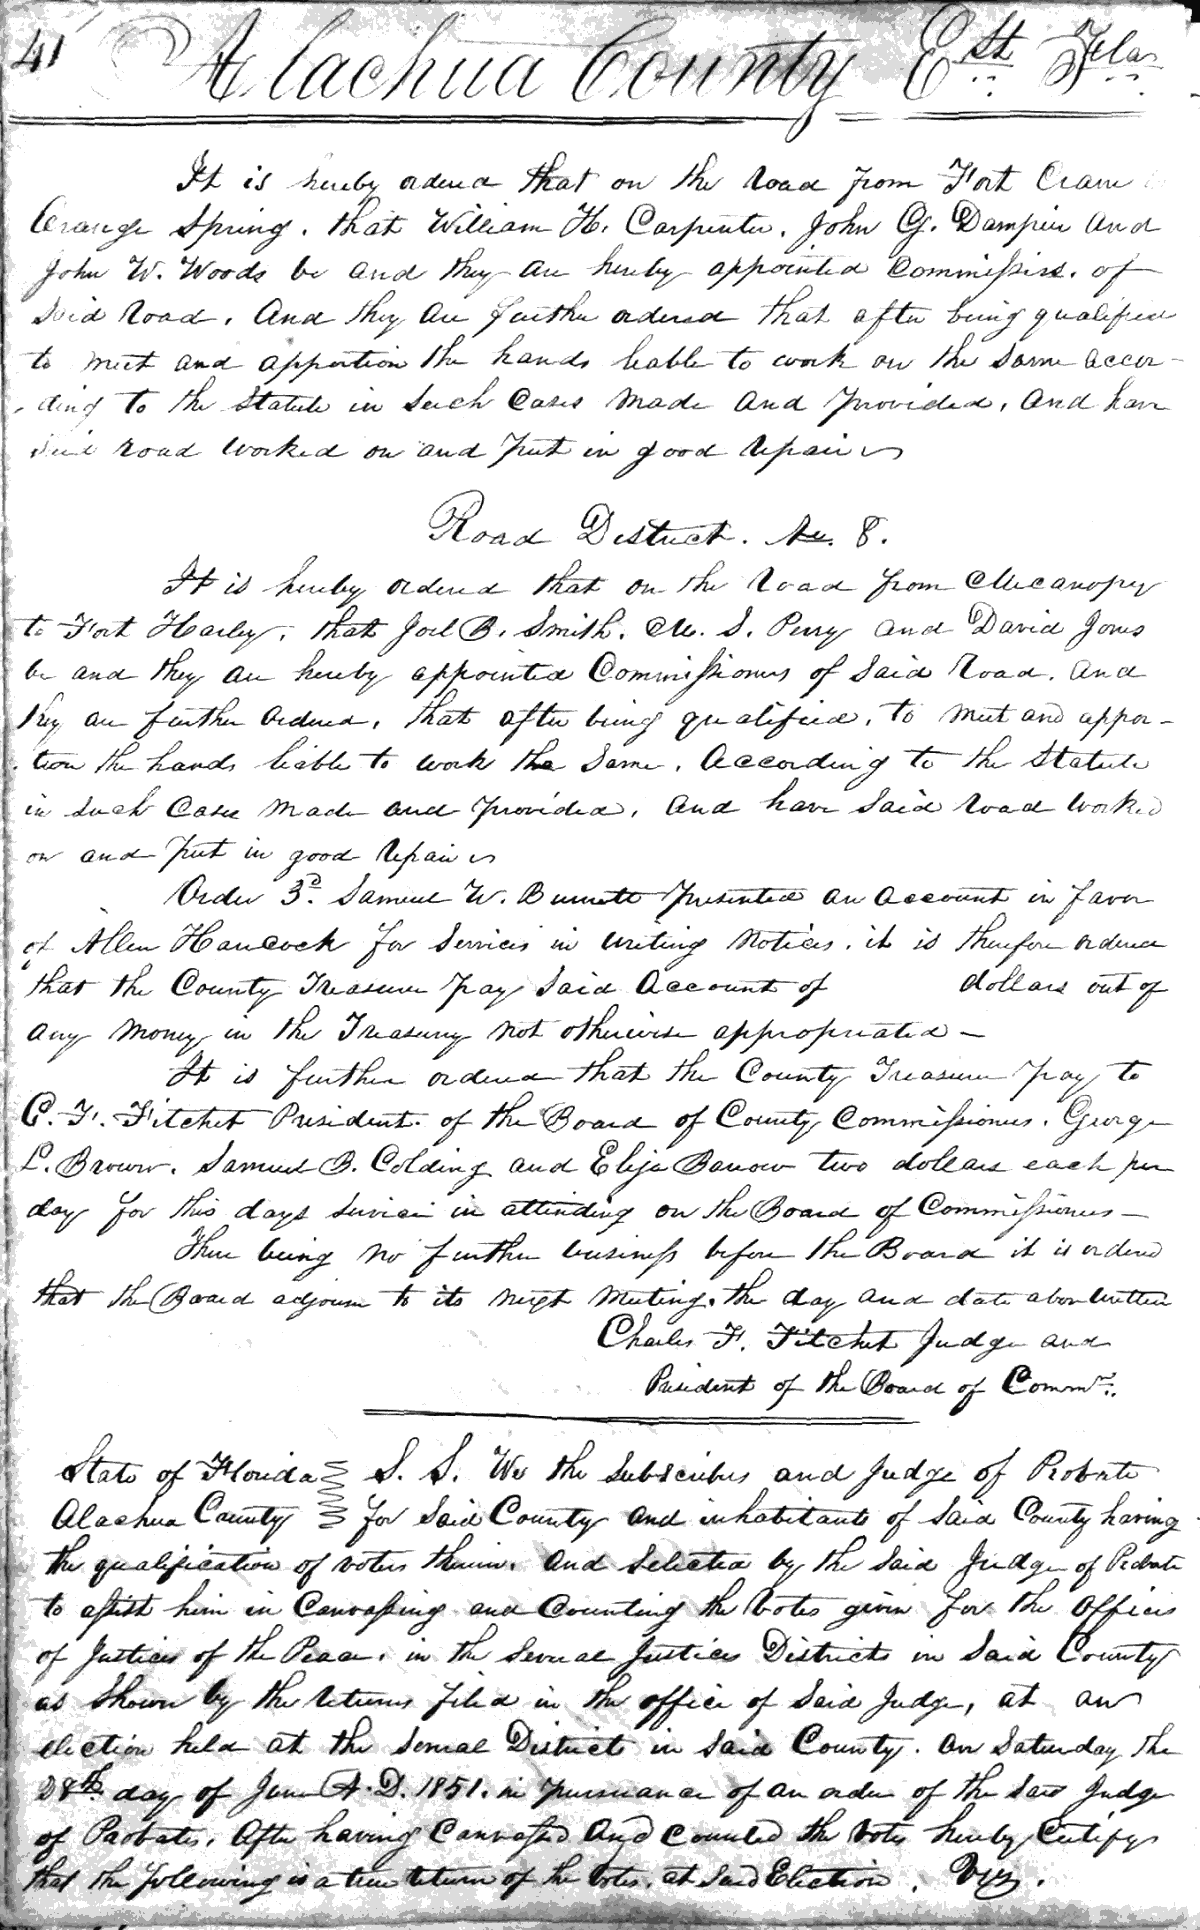 41 Alachua County Est Fla
It is hereby ordered that on the road from Fort Crane
Orange Spring. that William H. Carpenter. John G. Dampier and
John W. Woods be and they are hereby appointed Commissrs. of
Said road. And they are further ordered that after being qualified
to meet and apportion the hands liable to work on the same accor-
ding to the Statute in such Cases made and provided. And have
Said road worked on and put in good repair
Road District. No. 8.
It is hereby ordered that on the road from Micanopy
to Fort Harley. that Joel B. Smith. M. S. Perry and David Jones
be and they are hereby appointed Commissioners of Said road. And
they are further ordered, that after being qualified. to meet and appor-
tion the hands liable to work the same. According to the Statute
in such Cases made and provided. And have said road worked
on and put in good repair
Order 3d. Samuel W. Burnett presented an account in favor
of Allen Hancock for services in writing notices. it is therefore ordered
that the County Treasurer pay said account of dollars out of
any money in the Treasury not otherwise appropriated -
It is further ordered that the County Treasurer pay to
C. F. Fitchet President of the Board of County Commissioners. George
L. Brown. Samuel B. Colding and Elija Barrow two dollars each per
day for this days service in attending on the Board of Commissioners -
There being no further business before the Board it is ordered
that the Board adjourn to its next meeting. the day and date above written
Charles F. Fitchet Judge and
President of the Board of Commrs.
State of Florida S. S. We the Subscribers and Judge of Probate
Alachua County for said County and inhabitants of said County having
the qualification of voters therein. and selected by the said Judge of Probate
to assist him in Canvassing and Counting the votes given for the offices
of Justices of the Peace. in the several Justices Districts in said County
as shown by the returns filed in the office of said Judge, at an
election held at the several Districts in said County. on Saturday the
28th day of June A. D. 1851. in pursuance of an order of the said Judge
of Probate. After having Canvassed and Counted the votes hereby Certify
that the following is a true return of the votes. at said Election. Viz.